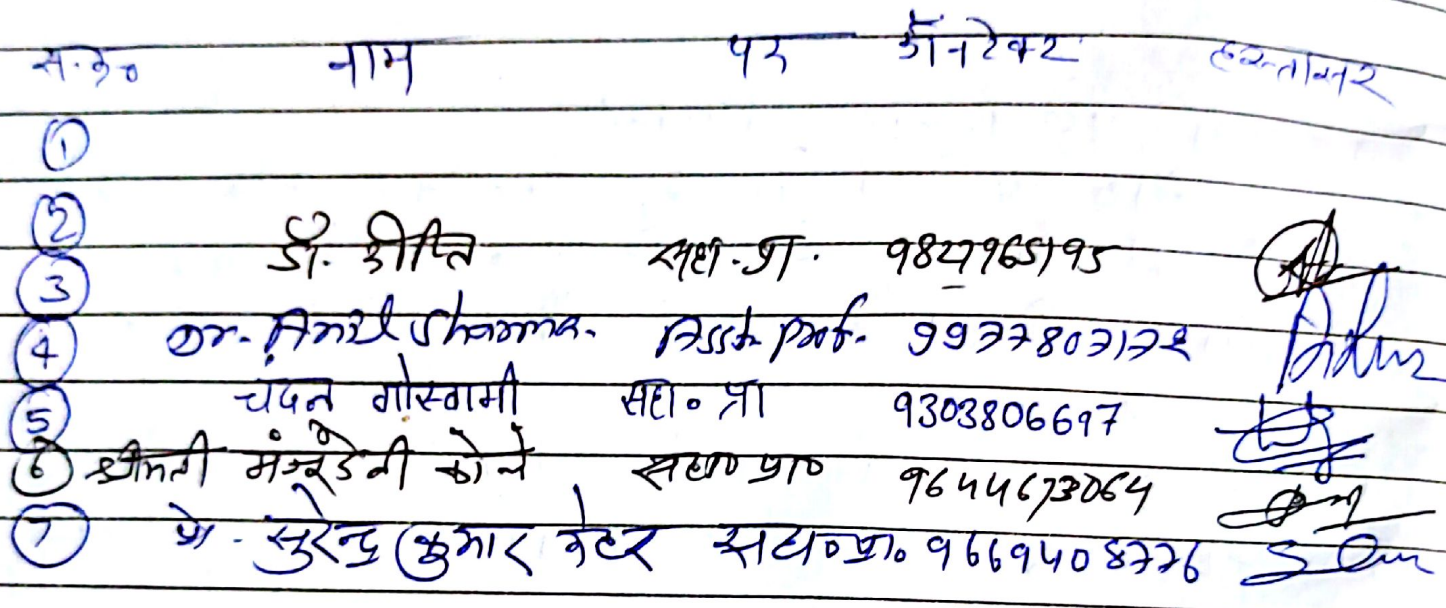 स.क्र० नाम पद कॉन्टेक्ट हस्ताक्षर
①
②
③ डॉ. दीप्ति सहा.प्रा. 9827965195
④ Dr. Anil Sharma. Asstt. prof. 9977807172
⑤ चंदन गोस्वामी सहा० प्रा 9303806697
⑥ श्रीमती सहा० प्रा० 9644673064
⑦ प्रो. सुरेन्द्र कुमार सहा०प्रा० 9669408776